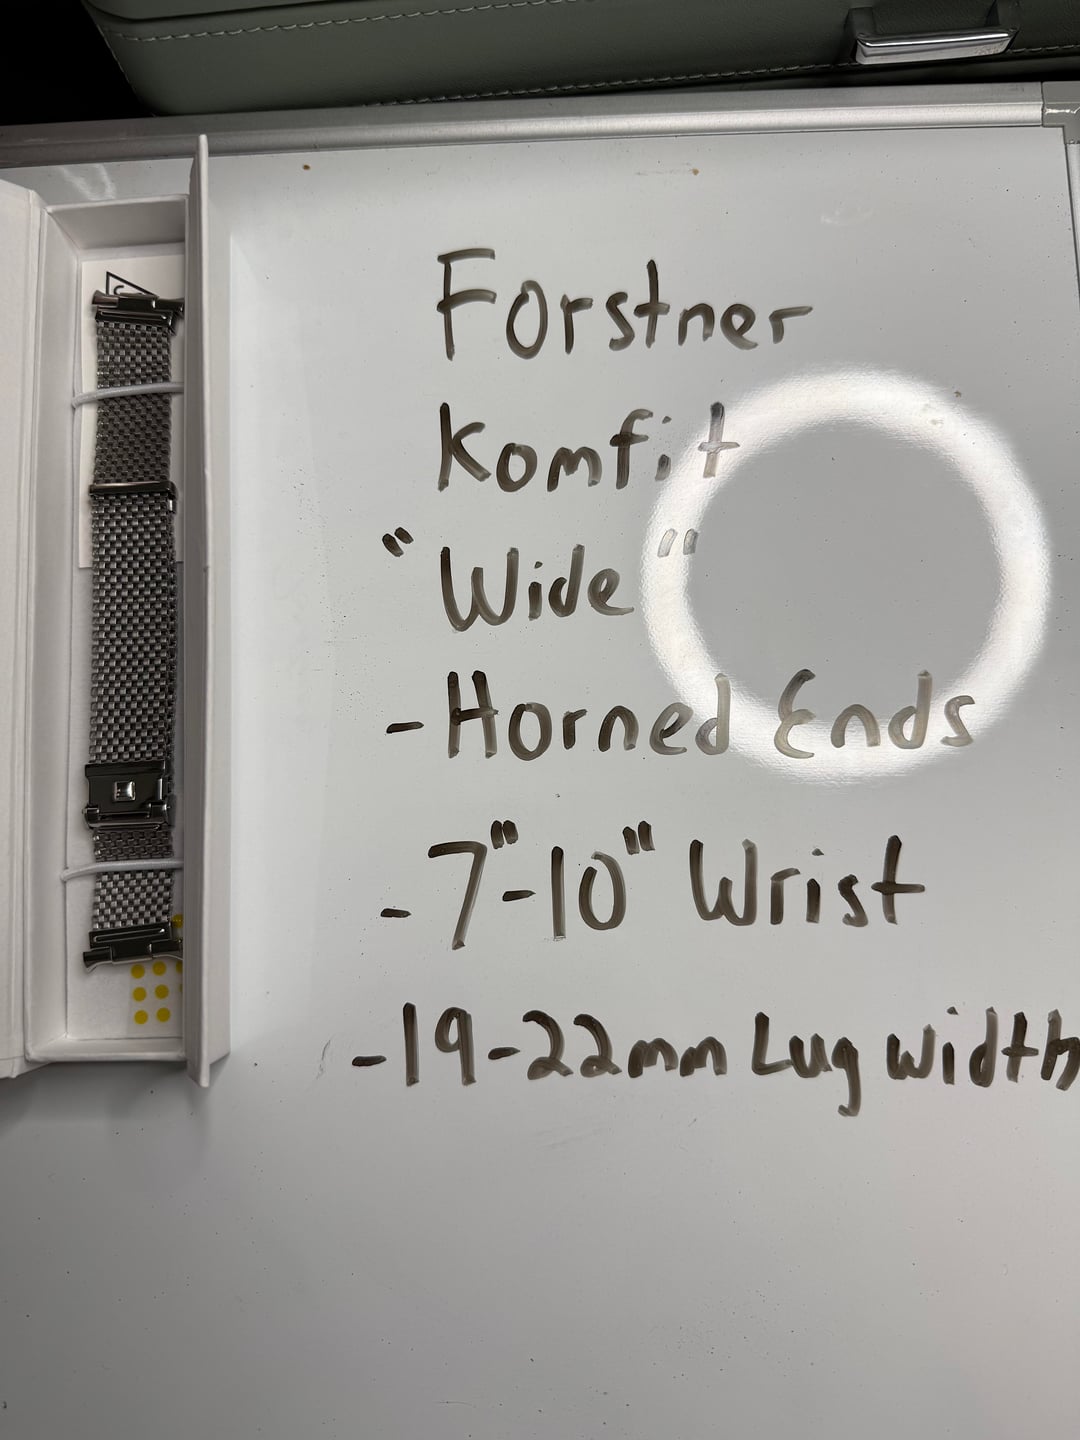 Forstner
Komfit
"Wide"
- Horned Ends
- 7"-10" Wrist
- 19-22mm Lug Width